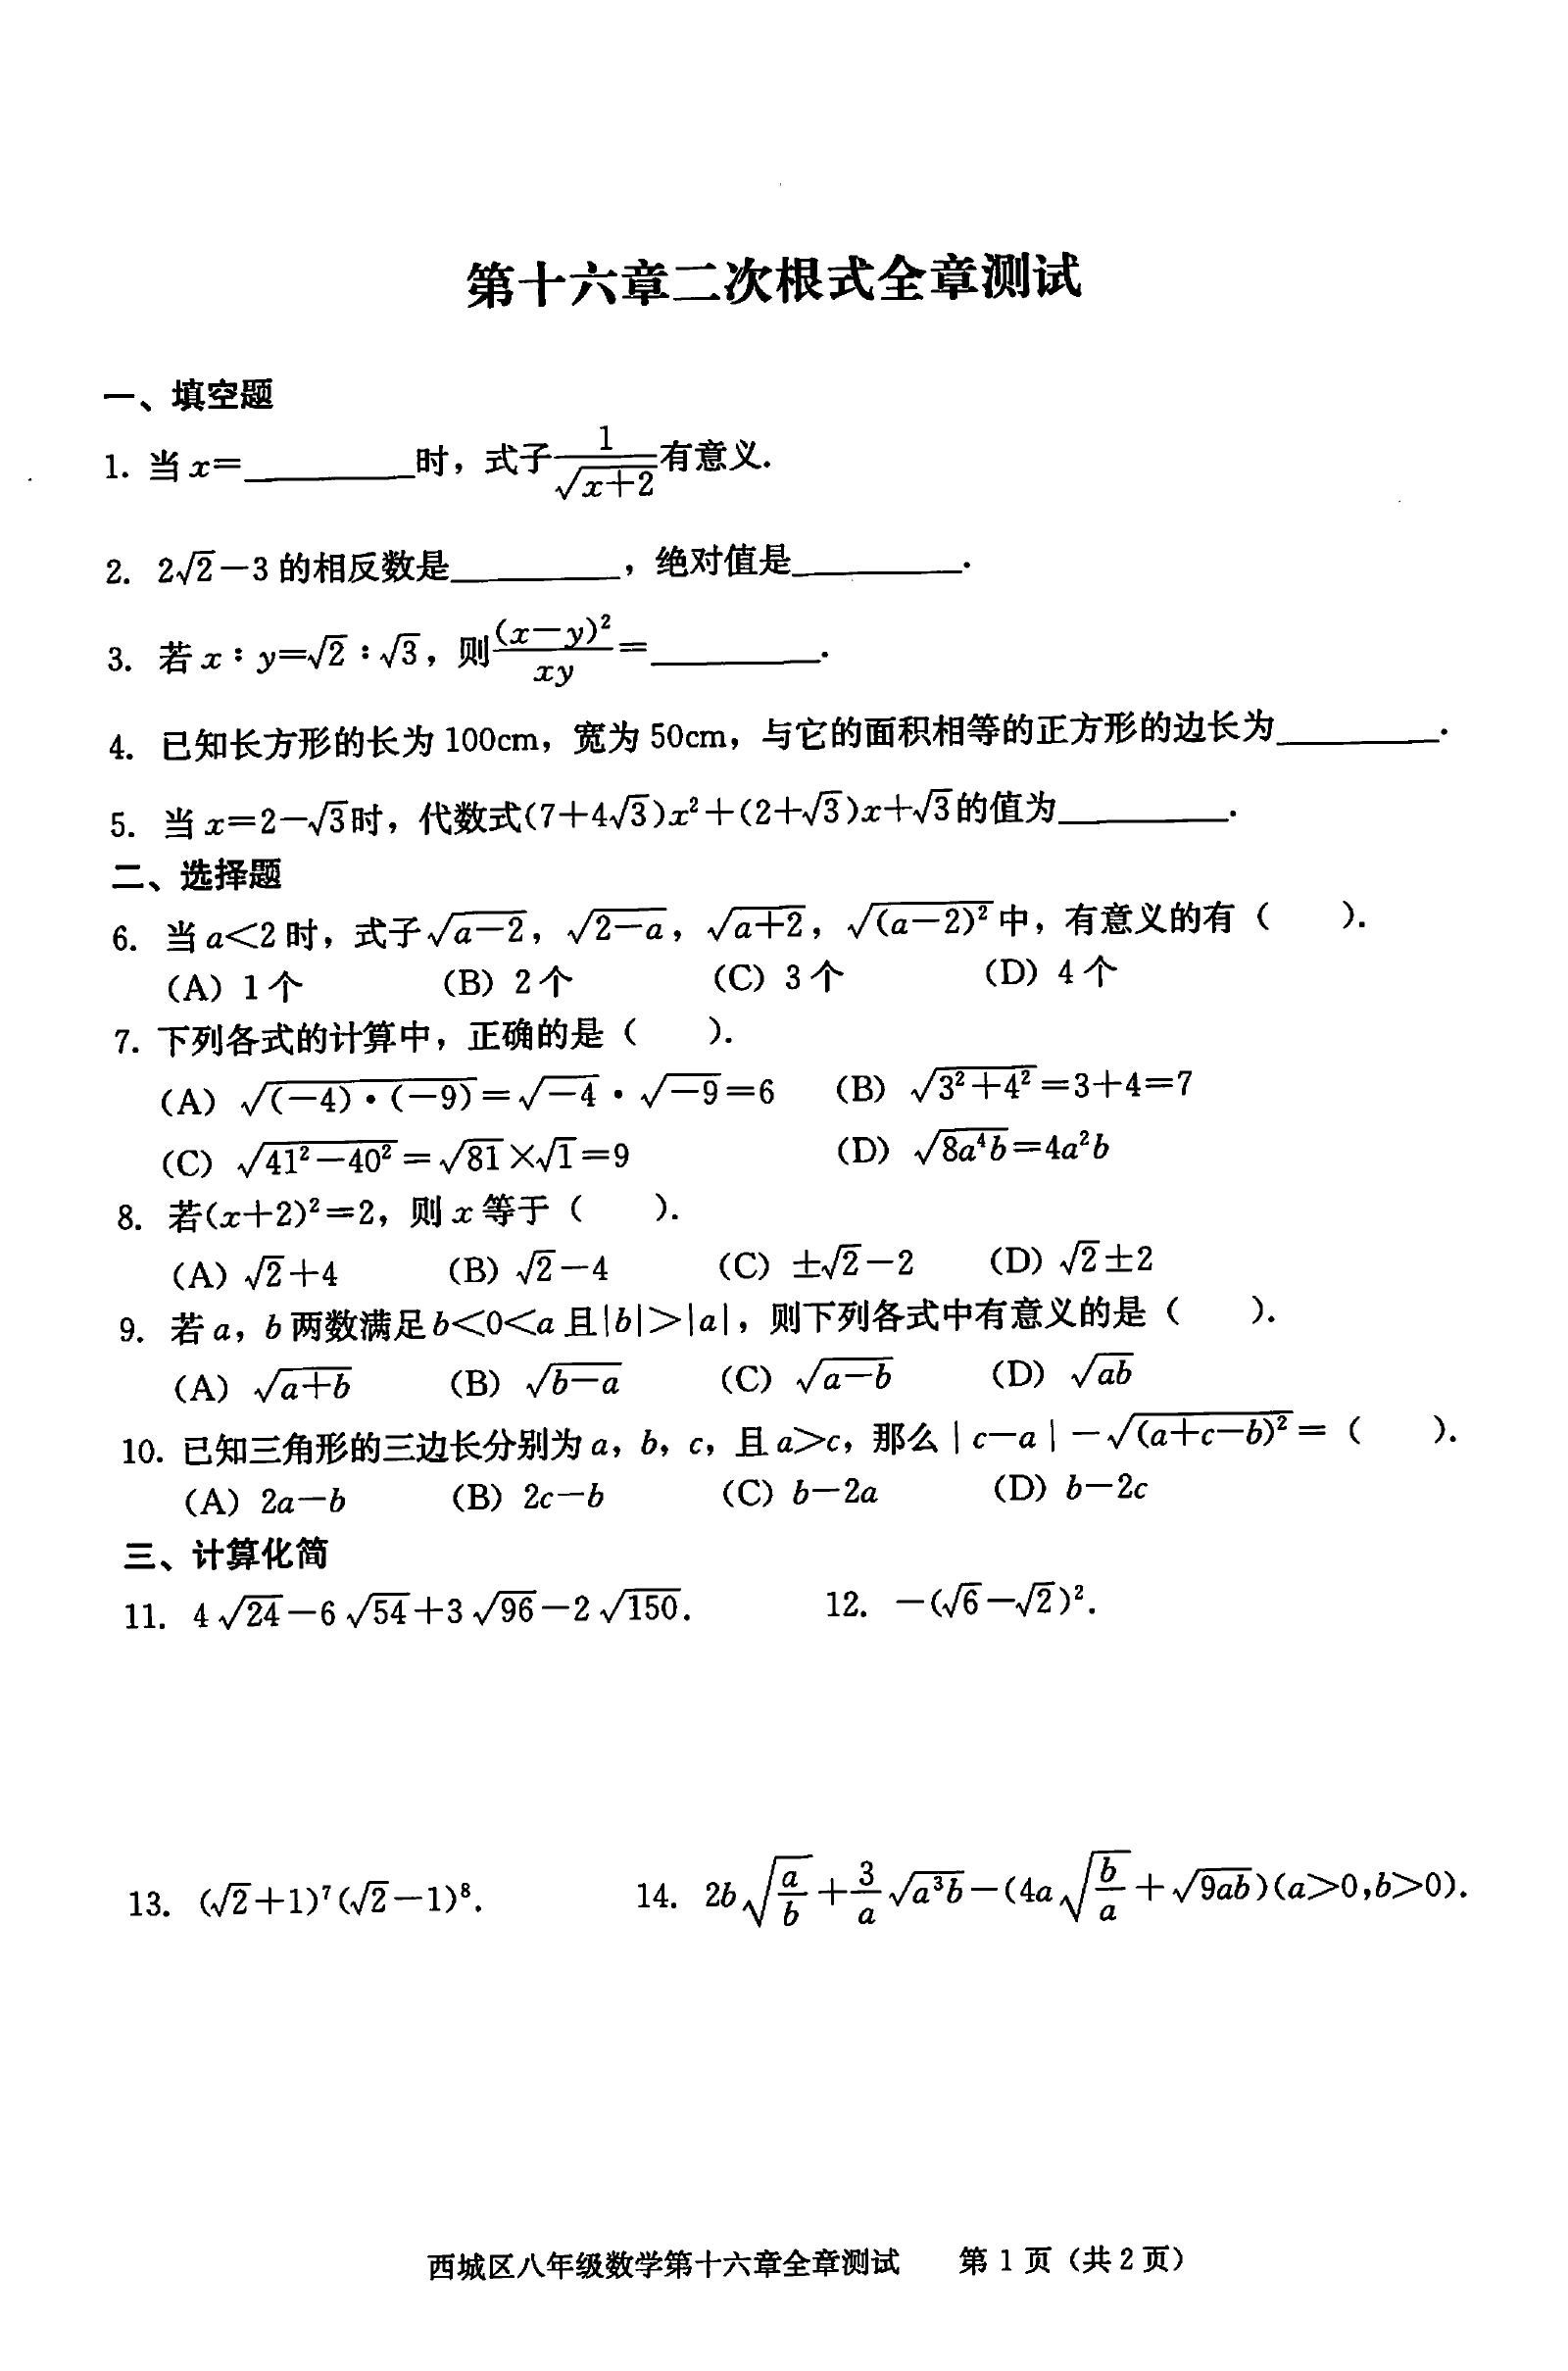 第十六章二次根式全章测试
一、填空题
1. 当 x=________时，式子\frac{1}{\sqrt{x+2}}有意义.
2. 2√2－3 的相反数是________，绝对值是________.
3. 若 x∶y=√2∶√3，则\frac{(x-y)^2}{xy}=________.
4. 已知长方形的长为 100cm，宽为 50cm，与它的面积相等的正方形的边长为________.
5. 当 x=2－√3时，代数式(7+4√3)x²+(2+√3)x+√3的值为________.
二、选择题
6. 当 a<2 时，式子\sqrt{a-2}，\sqrt{2-a}，\sqrt{a+2}，\sqrt{(a-2)^2}中，有意义的有（　　）.
（A）1 个　（B）2 个　（C）3 个　（D）4 个
7. 下列各式的计算中，正确的是（　　）.
（A）\sqrt{(-4)·(-9)}=\sqrt{-4}·\sqrt{-9}=6　（B）\sqrt{3^2+4^2}=3+4=7
（C）\sqrt{41^2-40^2}=\sqrt{81}×\sqrt{1}=9　（D）\sqrt{8a^4b}=4a²b
8. 若(x+2)²=2，则 x 等于（　　）.
（A）√2+4　（B）√2－4　（C）±√2－2　（D）√2±2
9. 若 a，b 两数满足 b<0<a 且|b|>|a|，则下列各式中有意义的是（　　）.
（A）\sqrt{a+b}　（B）\sqrt{b-a}　（C）\sqrt{a-b}　（D）\sqrt{ab}
10. 已知三角形的三边长分别为 a，b，c，且 a>c，那么｜c－a｜－\sqrt{(a+c-b)^2}=（　　）.
（A）2a－b　（B）2c－b　（C）b－2a　（D）b－2c
三、计算化简
11. 4\sqrt{24}－6\sqrt{54}+3\sqrt{96}－2\sqrt{150}.　12. －(√6－√2)².
13. (√2+1)⁷(√2－1)⁸.　14. 2b\sqrt{\frac{a}{b}}+\frac{3}{a}\sqrt{a^3b}－(4a\sqrt{\frac{b}{a}}+\sqrt{9ab})(a>0,b>0).
西城区八年级数学第十六章全章测试　第 1 页（共 2 页）